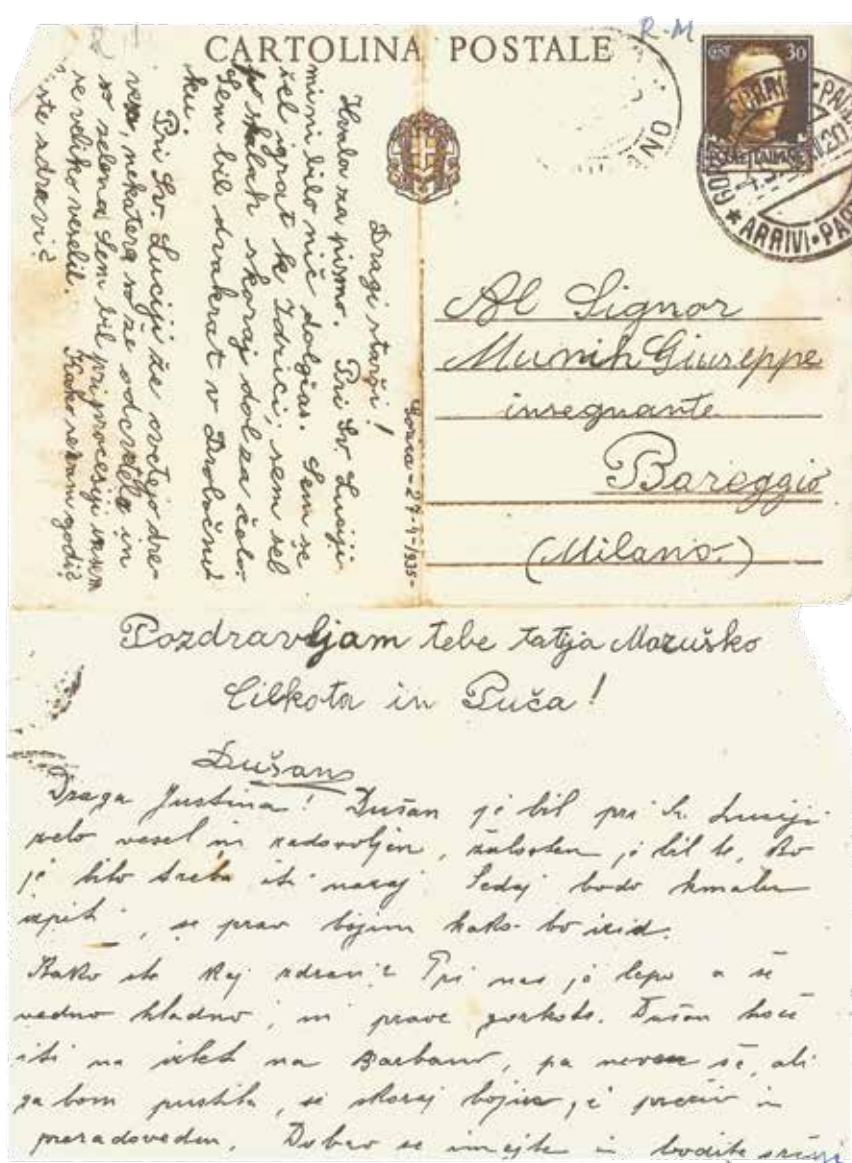 R-M
CARTOLINA POSTALE
30
POSTE ITALIANE
ARRIVI-PA
Gorica - 27-4-1935-
Dragi starši!
Hvala za pismo. Pri Sv. Luciji
mi ni bilo nič dolgčas. Sem se
šel igrat k Idrici, sem šel
po skalah skoraj dol za čelo.
Sem bil dvakrat v Drobočni
ku.
Pri Sv. Luciji že cvetejo dre-
vesa, nekatera so že odcvetela in
so zelena. Sem bil pri procesiji in sem
se veliko veselil. Kako se vam godi?
ste zdravi?
Al Signor
Munih Giuseppe
insegnante
Bareggio
(Milano.)
Pozdravljam tebe tatija Maruško
Cilkota in Puča!
Dušan
Draga Justina! Dušan je bil pri Sv. Luciji
zelo vesel in zadovoljen, žalosten je bil le, ko
je bilo treba iti nazaj. Sedaj bodo kmalu
izpiti, se prav bojim kako bo izid.
Kako ste kaj zdravi? Pri nas je lepo a še
vedno hladno, ni prave gorkote. Dušan hoče
iti na izlet na Barbano, pa ne vem še, ali
ga bom pustila, se skoraj bojim, je in
preradoveden. Dobro se imejte in bodite srčni